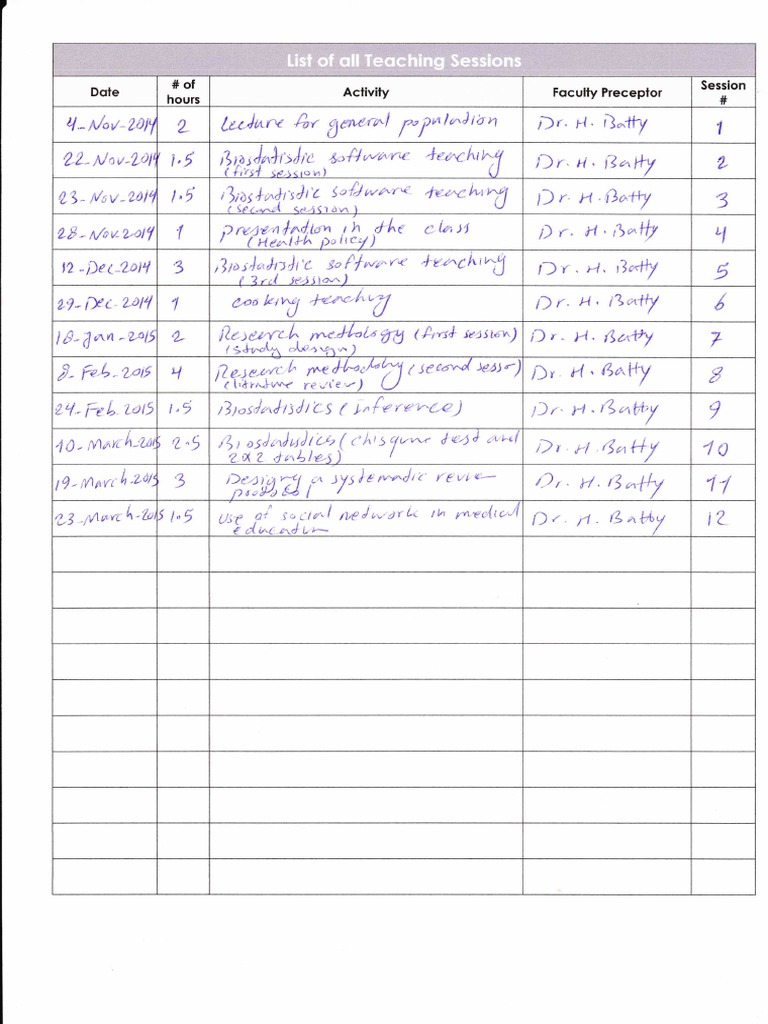 List of all Teaching Sessions
Date # of hours Activity Faculty Preceptor Session #
4-Nov-2014 2 Lecture for general population Dr. H. Batty 1
22-Nov-2014 1.5 Biostatistic software teaching Dr. H. Batty 2
(first session)
23-Nov-2014 1.5 Biostatistic software teaching Dr. H. Batty 3
(second session)
28-Nov-2014 1 presentation in the class Dr. H. Batty 4
(Health policy)
12-Dec-2014 3 Biostatistic software teaching Dr. H. Batty 5
(3rd session)
29-Dec-2014 1 cooking teaching Dr. H. Batty 6
18-Jan-2015 2 Research methology (first session) Dr. H. Batty 7
(study design)
8-Feb-2015 4 Research (second Dr. H. Batty 8
(litirature review)
24-Feb.2015 1.5 Biostatisdics (inference) Dr. H. Batty 9
10-March-2015 2.5 Biostatisdics ( test and Dr. H. Batty 10
2x2 tables)
19-March-2015 3 a systematic Dr. H. Batty 11
23-March-2015 1.5 use of social network in medical Dr. H. Batty 12